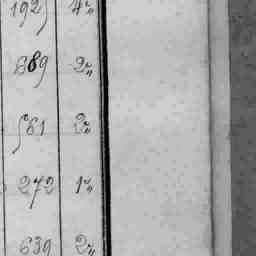 1925 4"
889 2"
581 2"
272 1"
639 2"